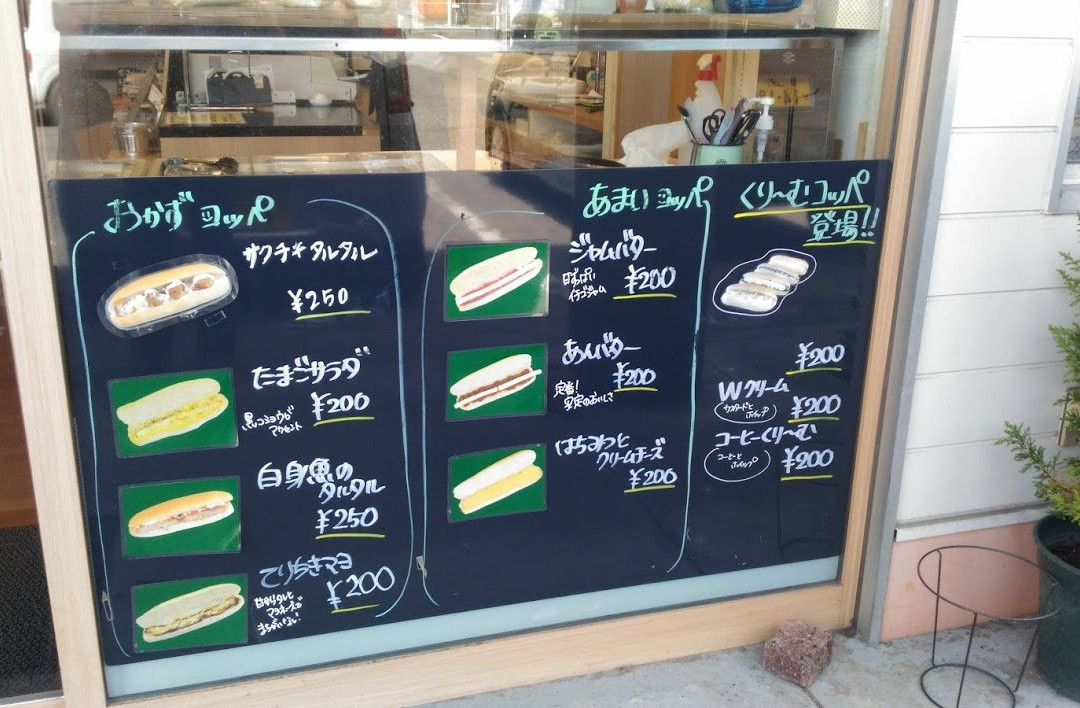 おかずコッペ
サクチキタルタル
¥250
たまごサラダ
黒コショウが
アクセント
¥200
白身魚の
タルタル
¥250
てりちきマヨ
¥200
甘辛タレと
マヨネーズで
まちがいない
あまいコッペ
ジャムバター
甘ずっぱい
イチゴジャム
¥200
あんバター
¥200
定番!
安定のおいしさ
はちみつと
クリームチーズ
¥200
くり〜むコッペ
登場!!
¥200
Wクリーム
カスタードと
ホイップ
¥200
コーヒーくり〜む
コーヒーと
ホイップ
¥200